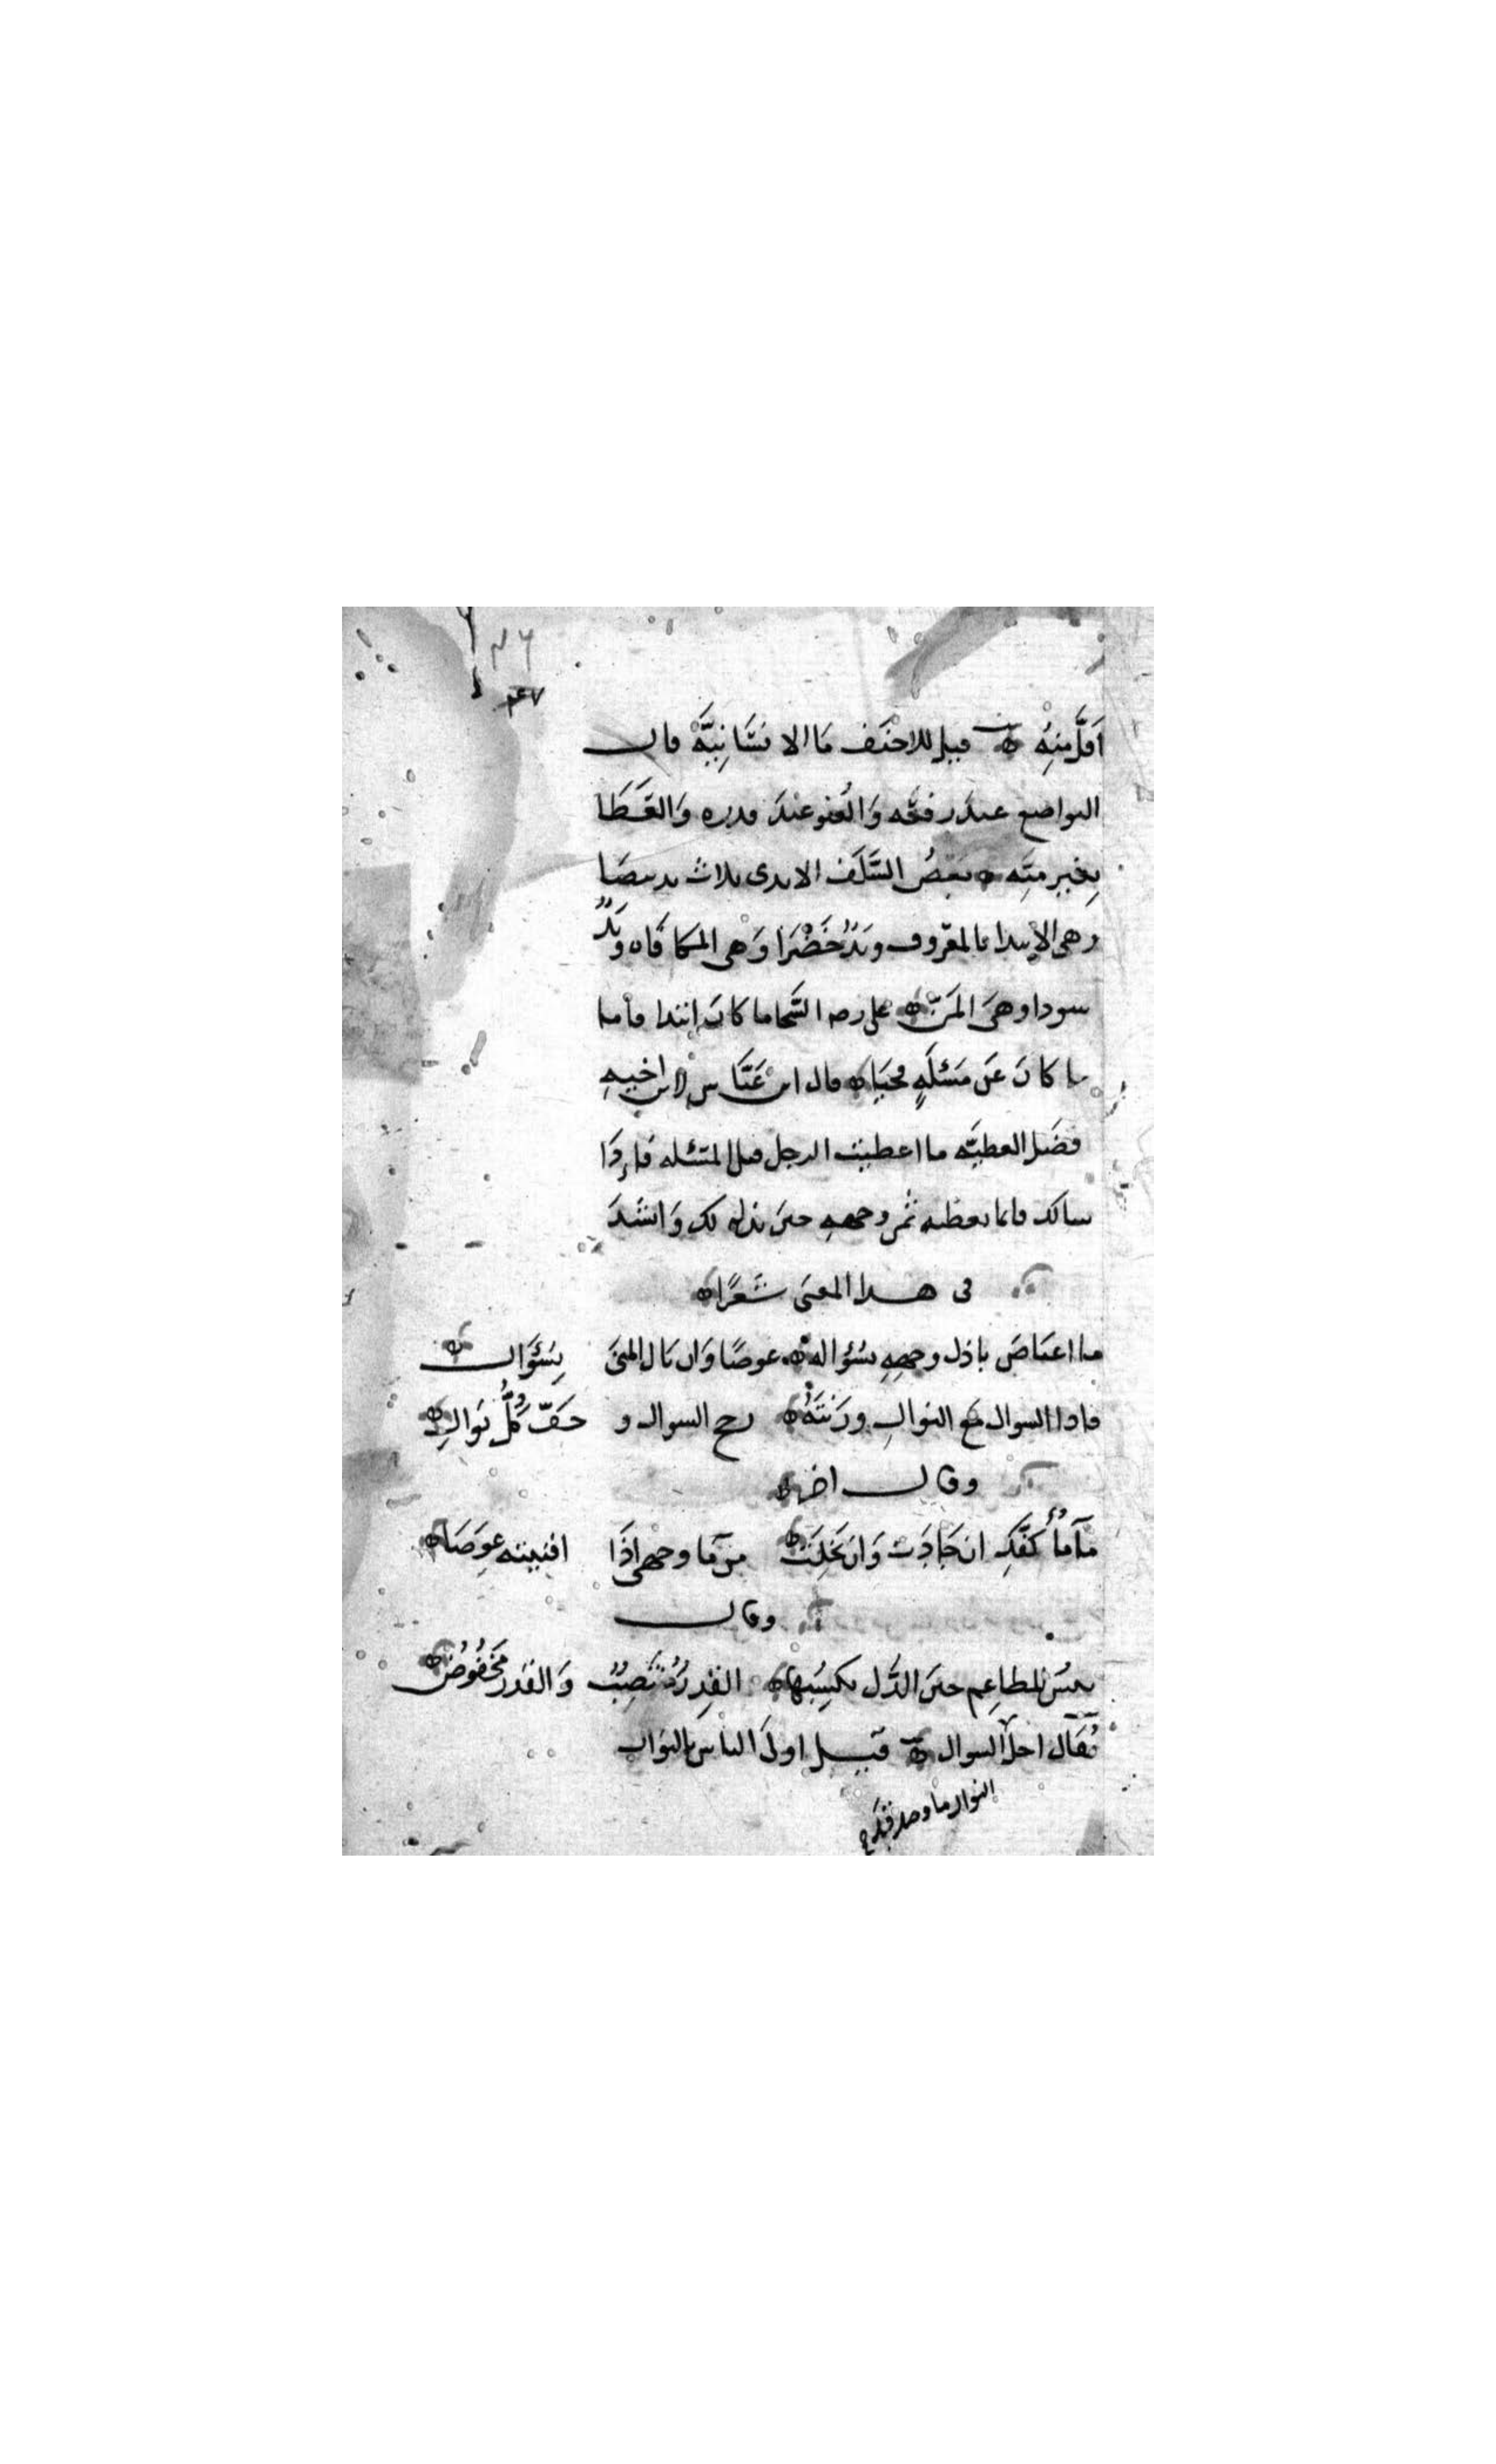 ٤٦
٤٧
اَقَلَّ مِنهُ ه قيل للاحنَف مَا الانسَانِيَّه قال
التواضع عندَ رفعَه وَالعَفو عندَ قدره وَالعَطَا
بِغَيرِ مِنَّه ه بعضُ السَّلَف الايدى ثلاث يد بيضَا
وهى الابتدا بالمعَروف ويَدٌ خَضْرَا وَهى المكافَاه ويَدٌ
سودا وهىَ المَنّ ه على رضه السَّخا ما كانَ ابتدا فأما
ما كانَ عَن مَسْئلَهٍ فحيَا ه قال ابن عَبَّاس لابن اخيهِ
فضَل العطيَّه ما اعطيت الرجل قبل المسَئله فاِذَا
سالك فانما تعطيه ثمن وجههِ حينَ بذله لك وَانشَدَ
فى هذا المعنَى شعرًا ه
ما اعتَاضَ باذل وجههِ بسُؤاله ه عوضًا وَان نال المنىَ بِسُؤَال ه
فاذا السوال مَع النوالِ وزَنتَهُ ه رجح السوال و خَفّ كُلُّ نَوالِ ه
وقال ايضا ه
مَآءُ كفَّكِ ان جَادَت وَان بَخِلَت ه من مَا وجهى اذَا افنيته عِوَضَا ه
وقال
بئسَ المطاعِم حينَ الذُل تكسِبُها ه القِدرُ مُنتَصِبٌ وَالقدرُ مَخفُوضُ ه
يُقَال احل السوال ه قيل اولىَ الناس بالنوال
النوال ما وصل قبل